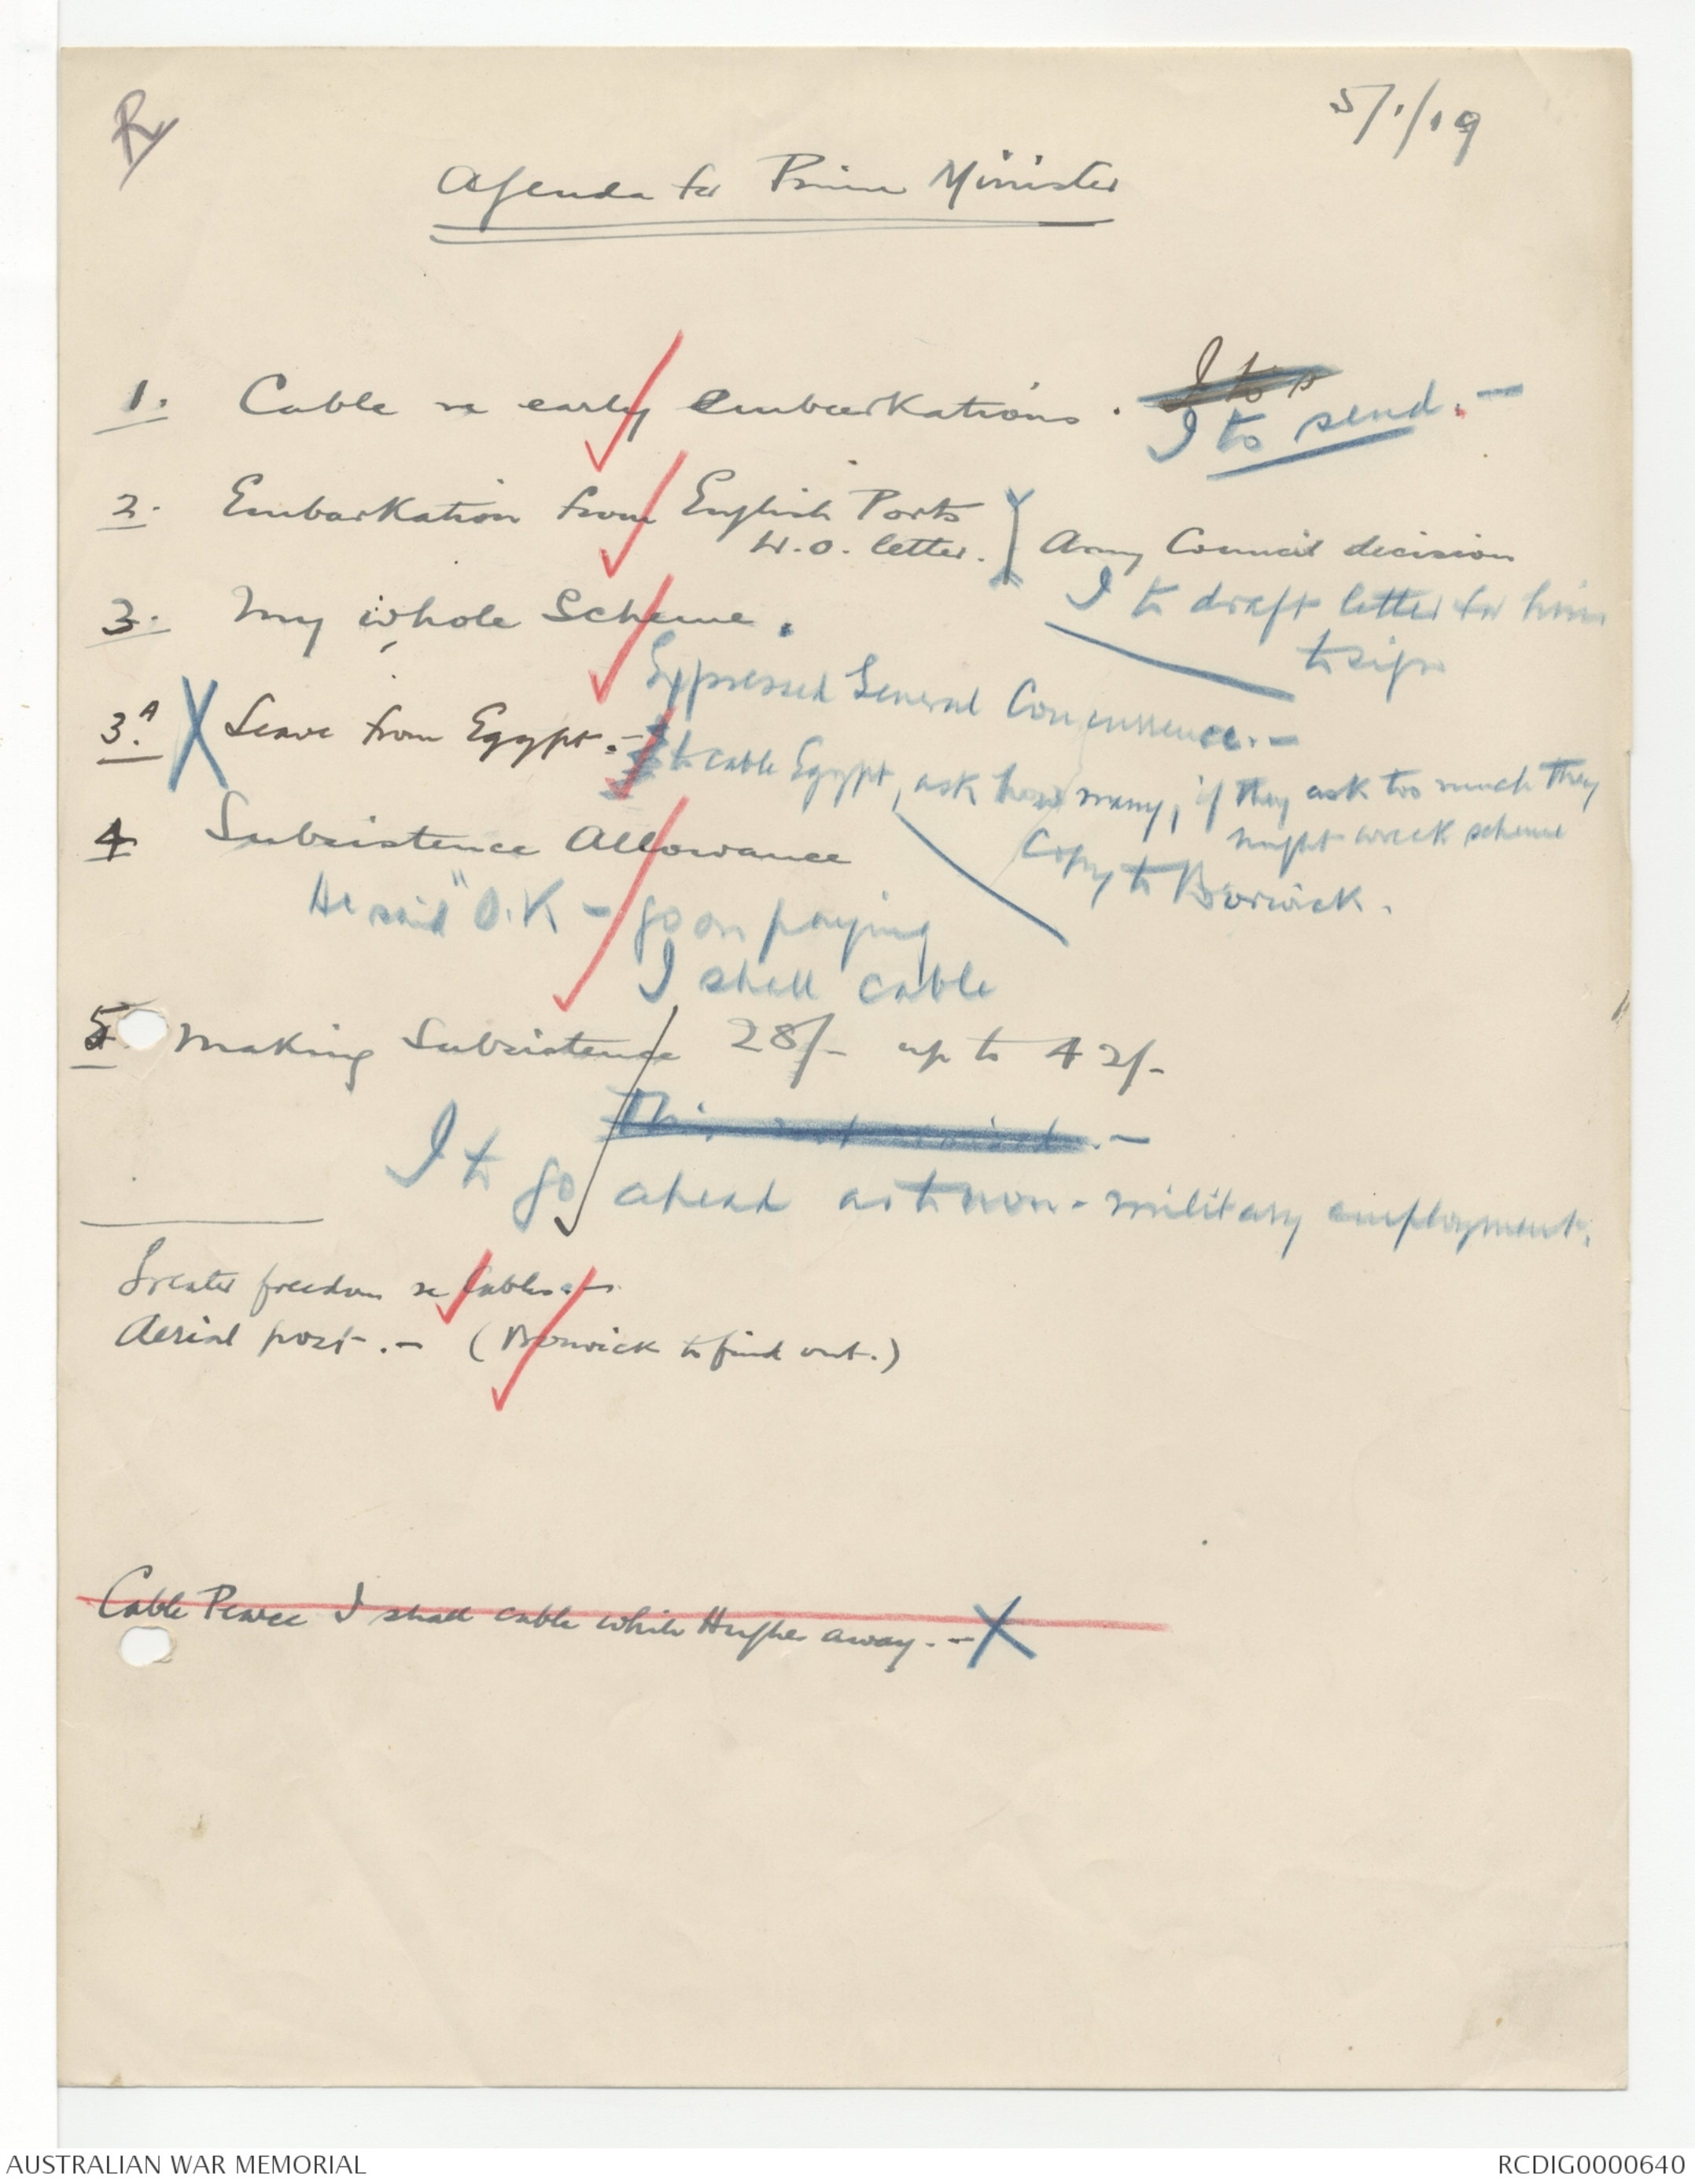 R
5/1/19
Agenda for Prime Minister
1. Cable re early embarkations. I to s
I to send. -
2. Embarkation from English Ports
W.O. letter. } Army Council decision
I to draft letter for him
to sign
3. My whole Scheme.
Expressed General Concurrence. -
3.A X Leave from Egypt. -
to cable Egypt, ask how many, if they ask too much they
might wreck scheme
Copy to Berwick.
4 Subsistence Allowance
He said "O.K - go on paying
I shall cable
5 Making Subsistence 28/- up to 42/-
This not raised. -
I to go ahead as to non-military employment.
Greater freedom re Cables. -
Aerial post. - (Berwick to find out.)
Cable Pearce I shall cable while Hughes away. - X
AUSTRALIAN WAR MEMORIAL
RCDIG0000640